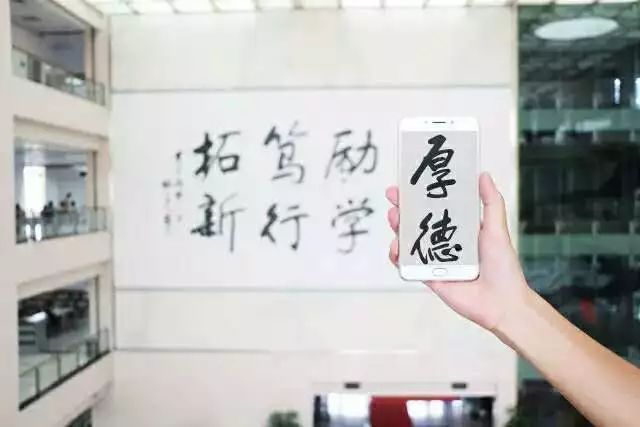 厚德
励学
笃行
拓新